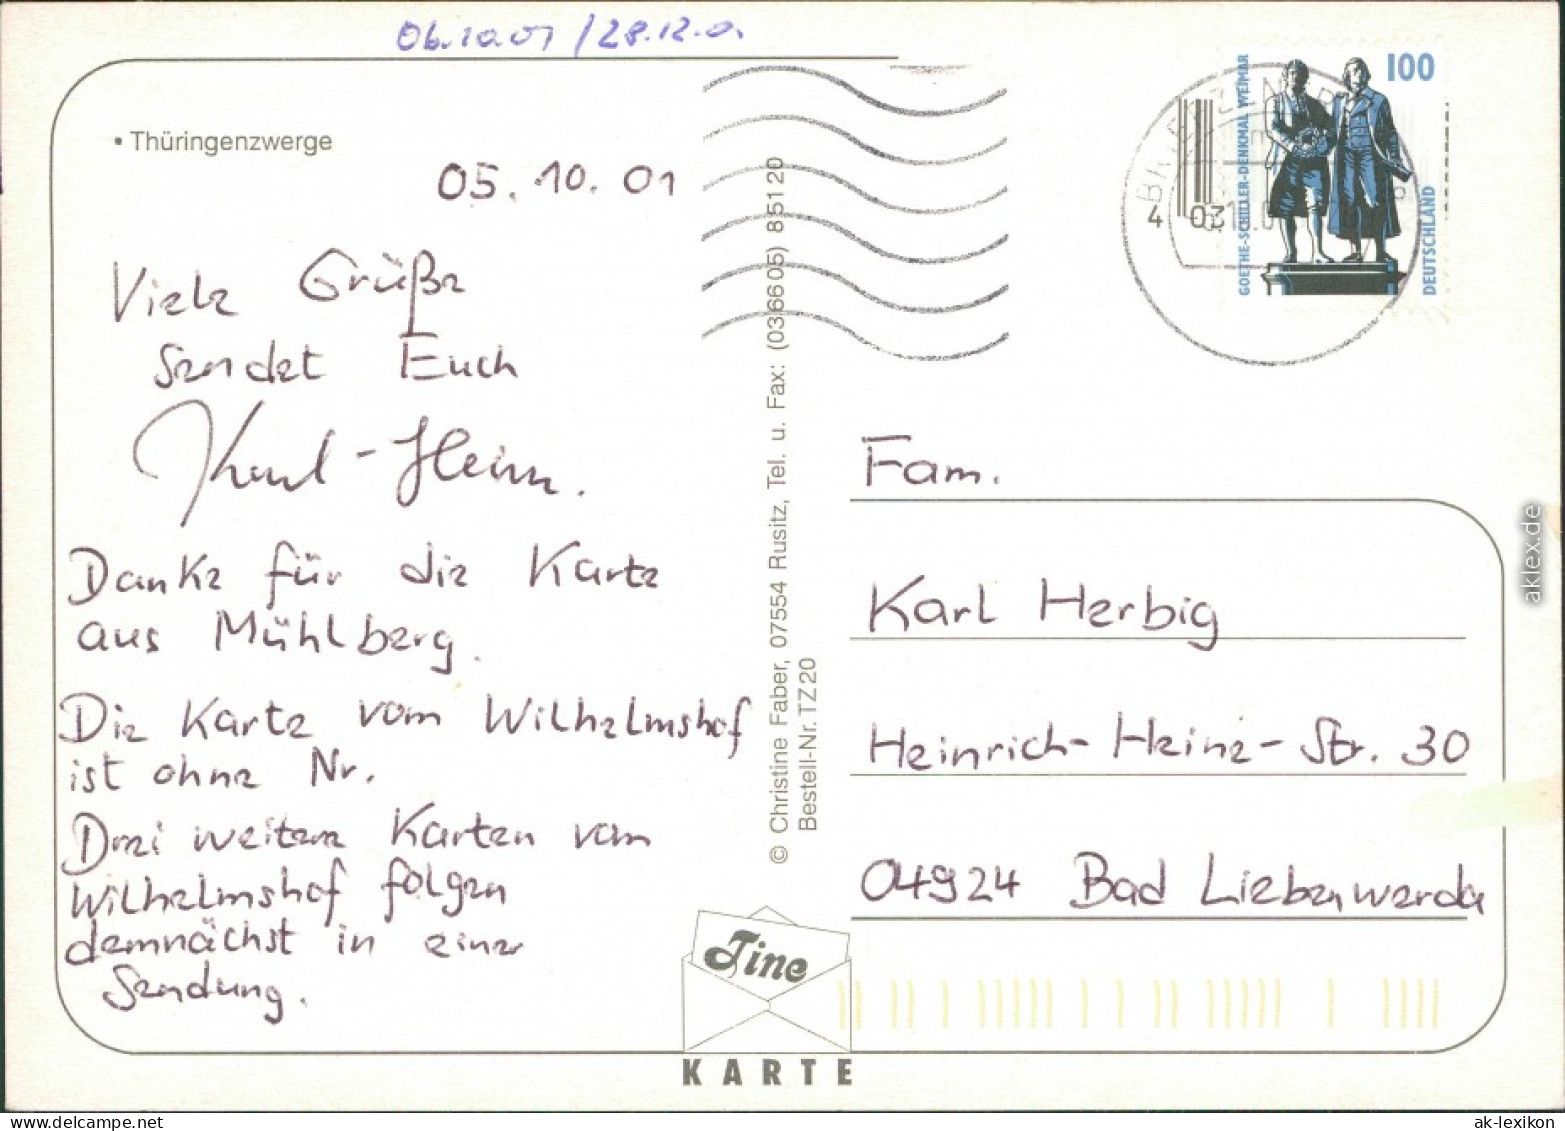 06.10.01 / 28.12.0.
• Thüringenzwerge
05.10.01
Viele Grüße
sendet Euch
Karl-Heinz.
Danke für die Karte
aus Mühlberg.
Die Karte vom Wilhelmshof
ist ohne Nr.
Drei weitere Karten vom
Wilhelmshof folgen
demnächst in einer
Sendung.
© Christine Faber, 07554 Rusitz, Tel. u. Fax: (036605) 85120
Bestell-Nr. TZ20
Tine
KARTE
100
GOETHE-SCHILLER-DENKMAL WEIMAR
DEUTSCHLAND
Fam.
Karl Herbig
Heinrich-Heine-Str. 30
04924 Bad Liebenwerda
aklex.de
ak-lexikon